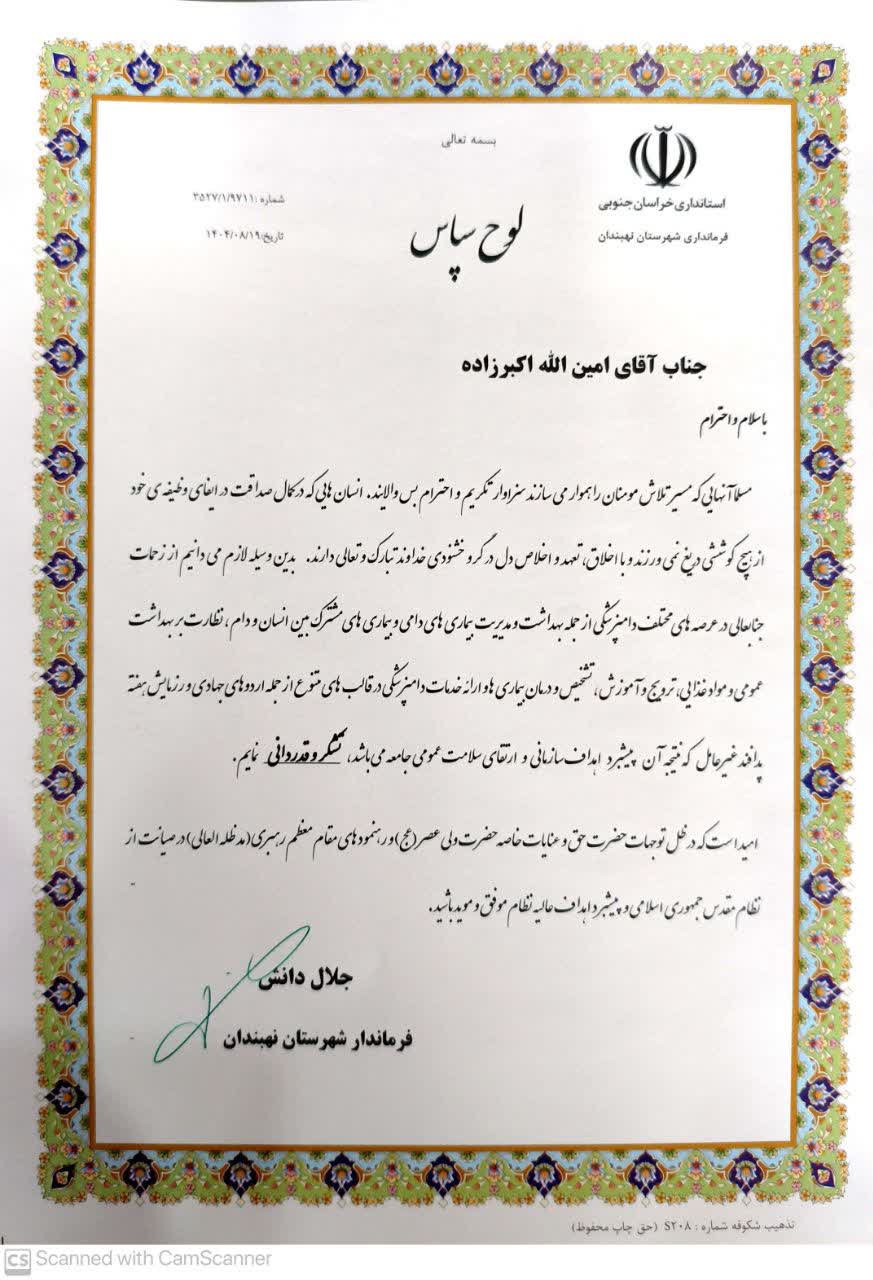 بسمه تعالی
استانداری خراسان جنوبی
فرمانداری شهرستان نهبندان
شماره :۳۵۲۷/۱/۹۷۱۱
تاریخ:۱۴۰۴/۰۸/۱۹
لوح سپاس
جناب آقای امین الله اکبرزاده
باسلام و احترام
مسلما آنهایی که مسیر تلاش مومنان را هموار می سازند سزاوار تکریم و احترام بس والایند. انسان هایی که در کمال صداقت در ایفای وظیفه ی خود
از هیچ کوششی دریغ نمی ورزند و با اخلاق، تعهد و اخلاص دل در گرو خشنودی خداوند تبارک و تعالی دارند. بدین وسیله لازم می دانیم از زحمات
جنابعالی در عرصه های مختلف دامپزشکی از جمله بهداشت و مدیریت بیماری های دامی و بیماری های مشترک بین انسان و دام ، نظارت بر بهداشت
عمومی و مواد غذایی، ترویج و آموزش، تشخیص و درمان بیماری ها و ارائه خدمات دامپزشکی در قالب های متنوع از جمله اردوهای جهادی و رزمایش هفته
پدافند غیرعامل که نتیجه آن پیشبرد اهداف سازمانی و ارتقای سلامت عمومی جامعه می باشد، تشکر و قدردانی نمایم.
امید است که در ظل توجهات حضرت حق و عنایات خاصه حضرت ولی عصر(عج) و رهنمودهای مقام معظم رهبری(مدظله العالی) در صیانت از
نظام مقدس جمهوری اسلامی و پیشبرد اهداف عالیه نظام موفق و موید باشید.
جلال دانش
فرماندار شهرستان نهبندان
تذهیب شکوفه شماره : S۲۰۸ (حق چاپ محفوظ)
CS Scanned with CamScanner